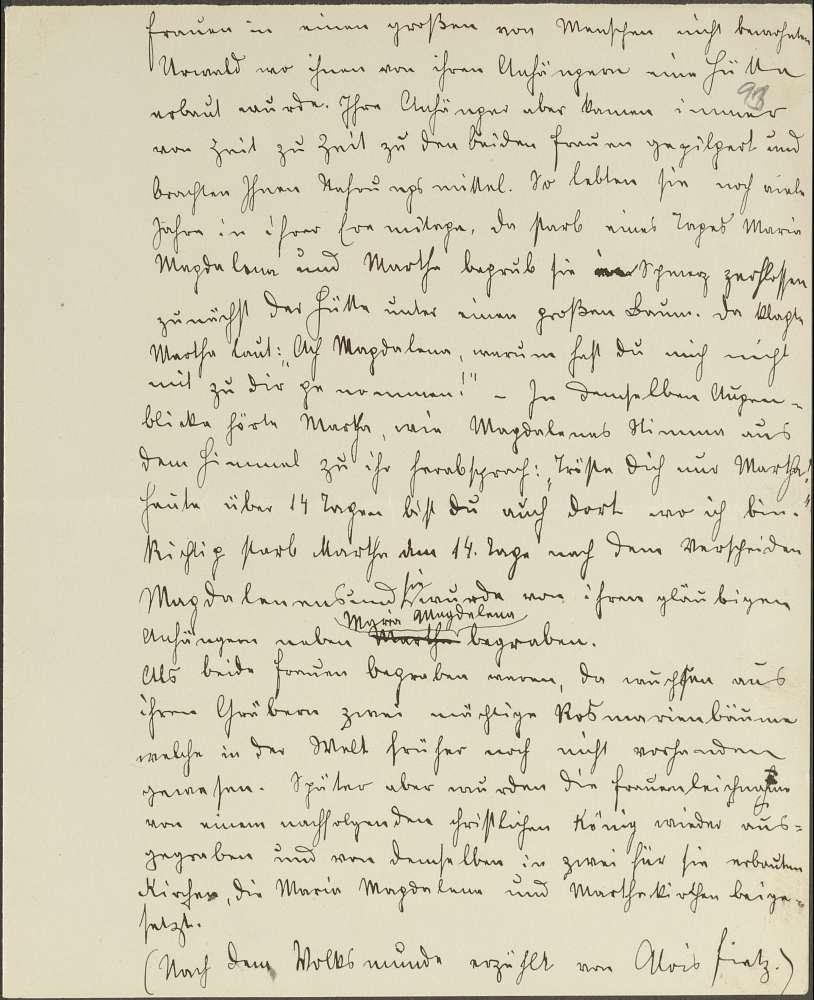 Frauen in einen großen von Menschen nicht bewohnten
Urwald wo ihnen von ihren Anhängern eine Hütte
93
erbaut wurde. Ihre Anhänger aber kamen immer
von Zeit zu Zeit zu den beiden Frauen gepilgert und
brachten Ihnen Nahrungsmittel. So lebten sie noch viele
Jahre in ihrer Eremitage, da starb eines Tages Maria
Magdalena und Martha begrub sie Schmerz zerflossen
zunächst der Hütte unter einen großen Baum. Da klagte
Martha laut: „Ach Magdalena, warum hast du mich nicht
mit zu dir genommen!" – In demselben Augen-
blicke hörte Martha, wie Magdalenas Stimme aus
dem Himmel zu ihr herabsprach: „Tröste dich nur Martha!
heute über 14 Tagen bist du auch dort wo ich bin."
Richtig starb Martha am 14. Tage nach dem Verscheiden
Magdalenens und sie wurde von ihren gläubigen
Anhängern neben Maria Magdalena begraben.
Als beide Frauen begraben waren, da wuchsen aus
ihren Gräbern zwei mächtige Rosmarienbäume
welche in der Welt früher noch nicht vorhanden
gewesen. Später aber wurden die Frauenleichname
von einem nachfolgenden christlichen König wieder aus=
gegraben und von demselben in zwei für sie erbauten
Kirchen, die Maria Magdalena und Marthakirchen beige-
setzt.
(Nach dem Volksmunde erzählt von Alois Fietz.)